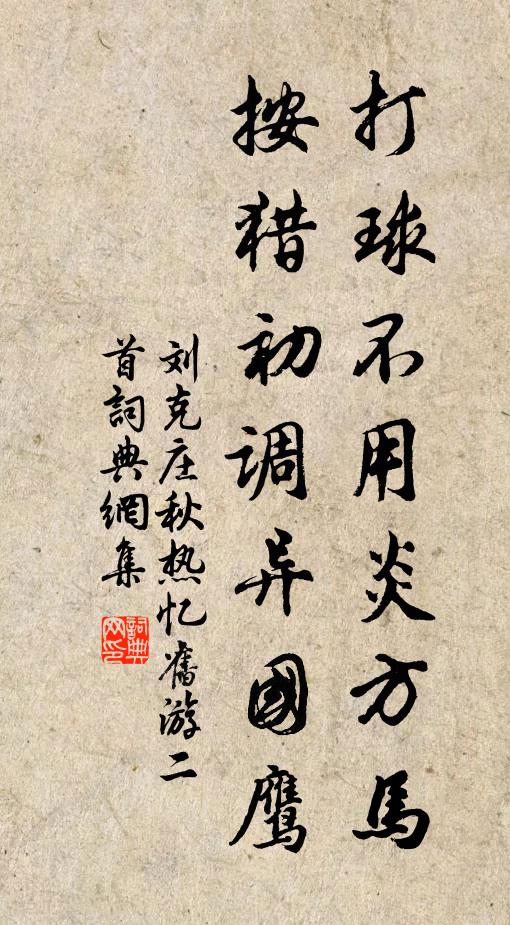 打球不用炎方馬
按猎初调异國鹰
刘克庄秋热忆舊游二
首詞典網集
詞典网印